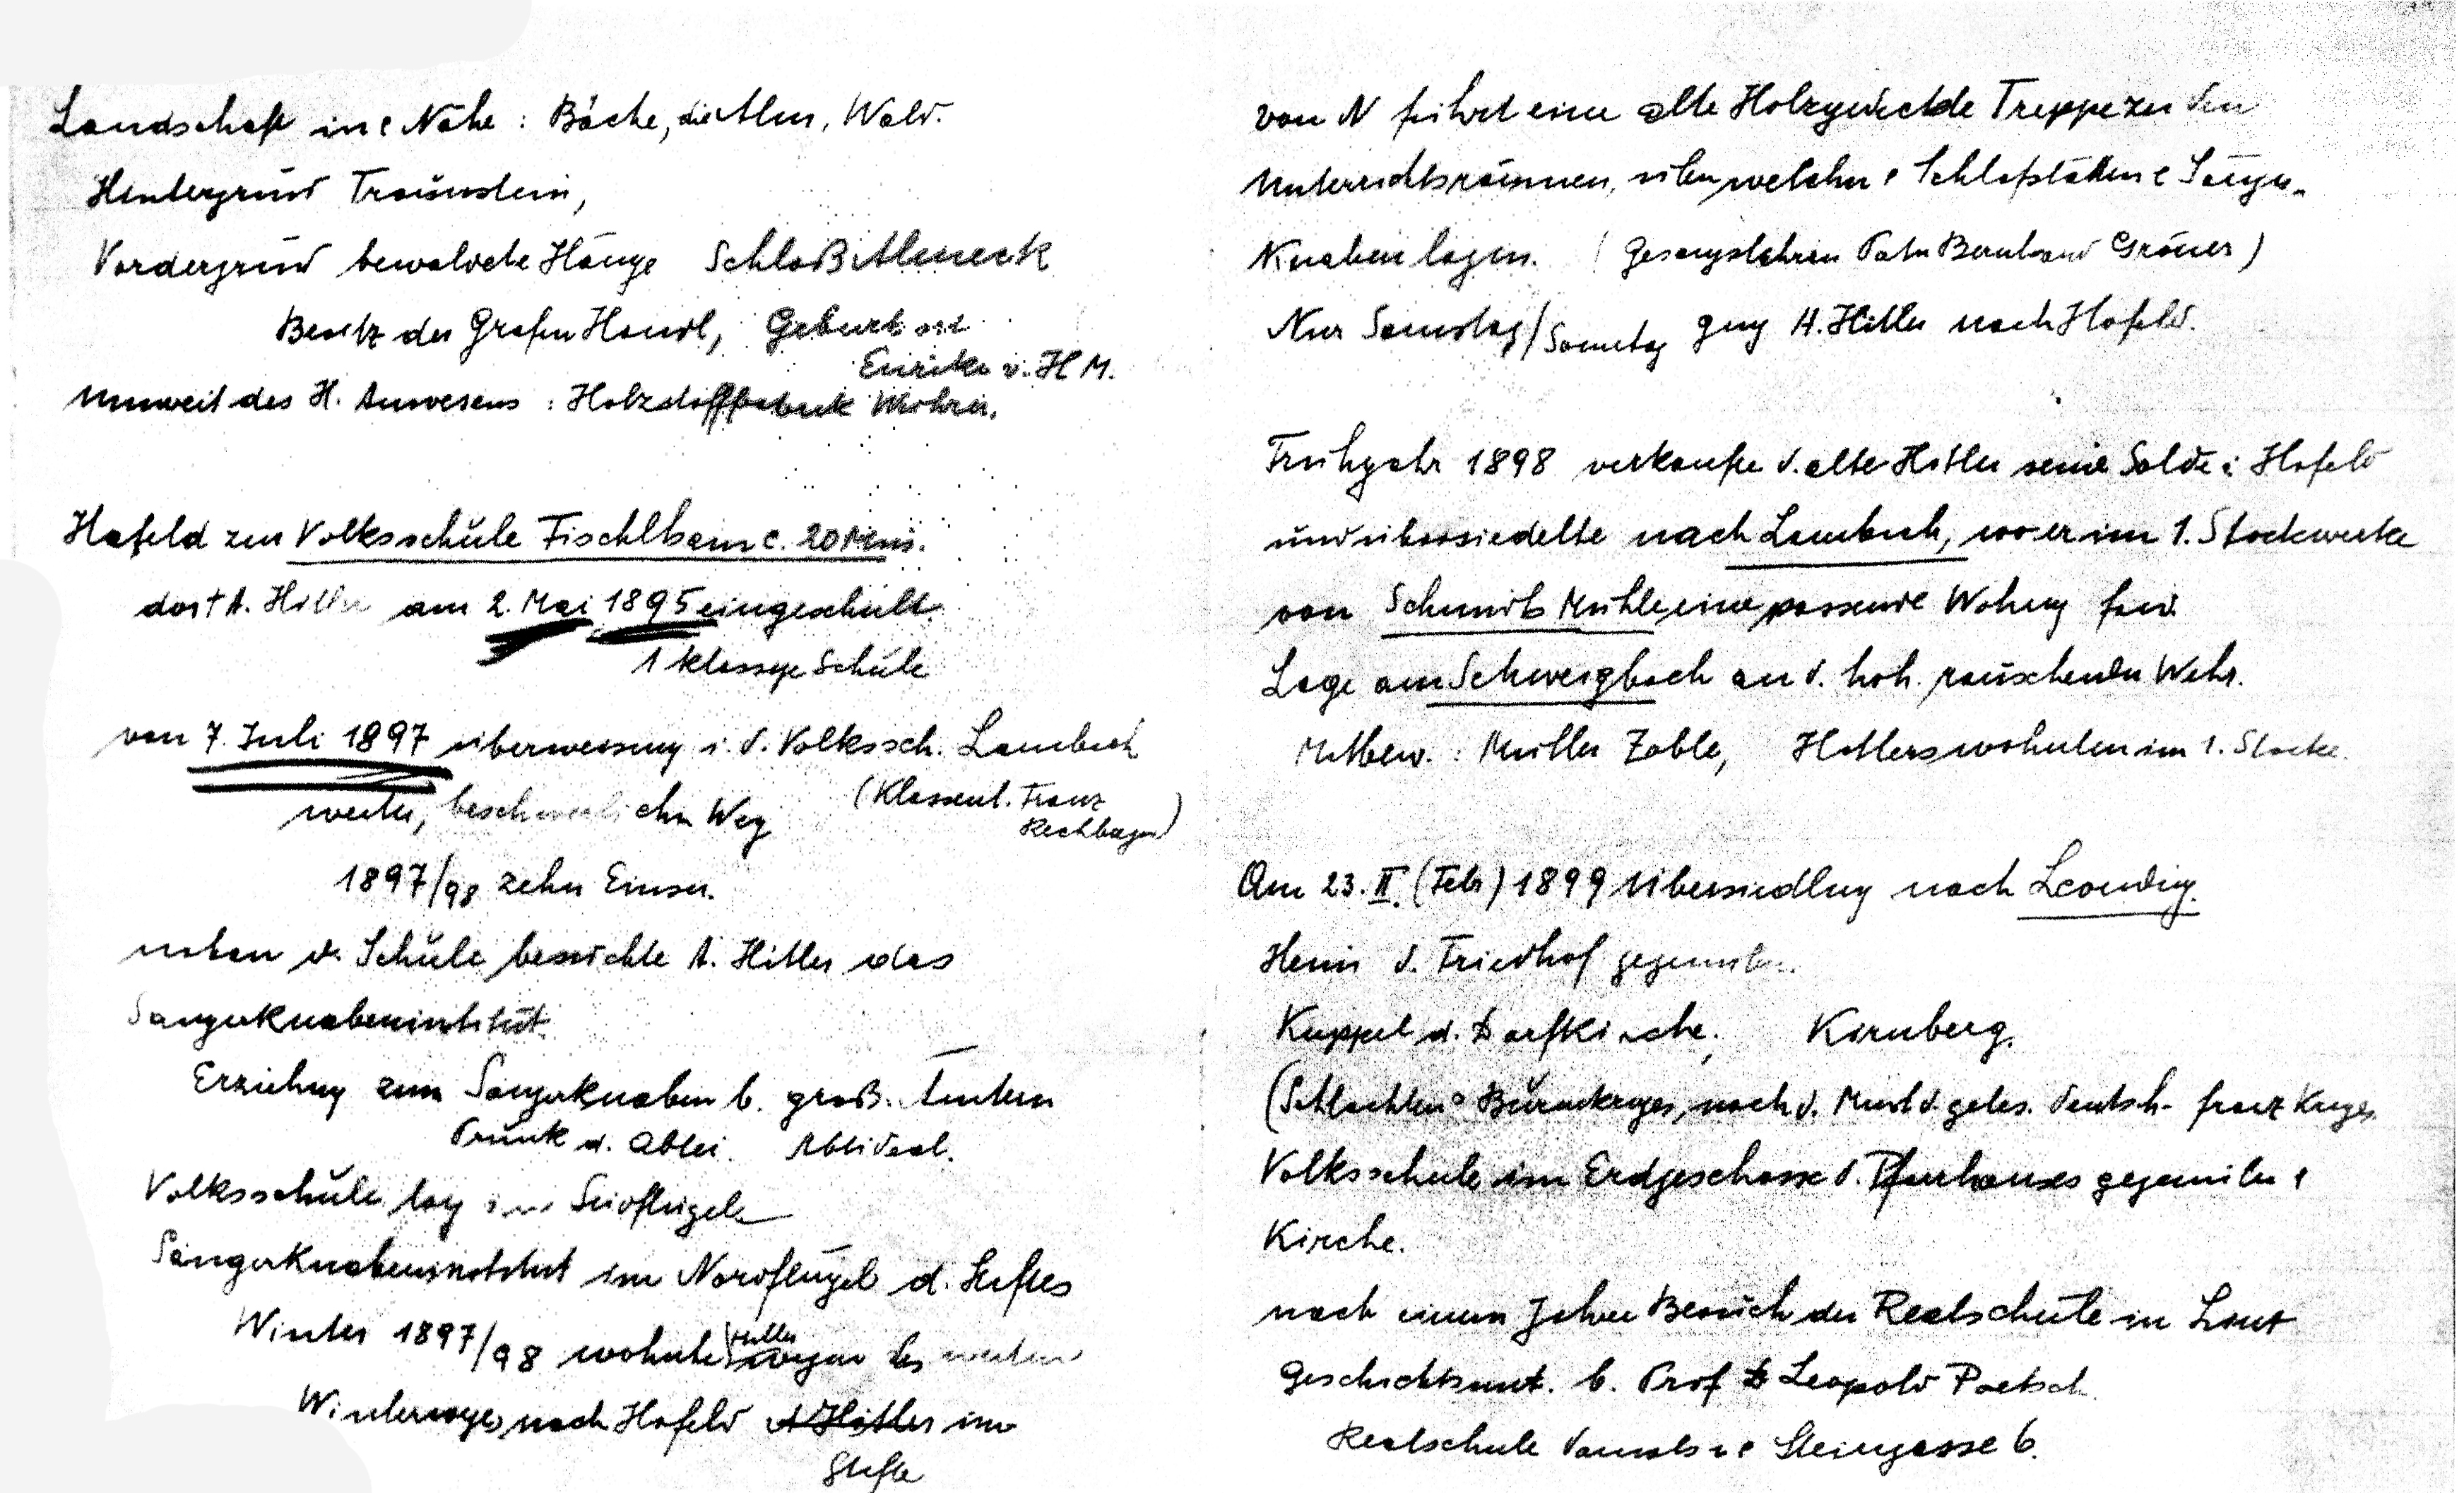 Landschaft in e Nähe : Bäche, die Alm, Wald.
Hintergrund Traunstein,
Vordergrund bewaldete Hänge Schloß Almeck
Besitz der Grafen Handl, Geburtsort
Enrika v. H M.
Unweit des H. Anwesens : Holzstofffabrik
Hafeld zur Volksschule Fischlham c. 20 Min.
dort A. Hitler am 2. Mai 1895 eingeschult.
1 klassige Schule
von 7. Juli 1897 überweisung i. d. Volkssch. Lambach
(Klassenl. Franz
Rechberger)
weiter, beschwerlicher Weg
1897/98 zehn Einser.
neben d. Schule besuchte A. Hitler das
Sängerknabeninstitut.
Erziehung zum Sängerknaben b. groß. Ämtern
Prunk d. Abtei.
Volksschule lag im Südflügel
Sängerknabeninstitut im Nordflügel d. Stiftes
Winter 1897/98 wohnte Hitler wegen des weiten
Winterweges nach Hafeld A Hitler im
Stifte
von N führt eine alte Holzgedeckte Treppe zu den
Unterrichtsräumen, über welchen e Schlafstätten e Sänger-
Knaben lagen. (Gesangslehrer Pater Bernhard Gröner)
Nur Samstag/Sonntag ging A. Hitler nach Hafeld.
Frühjahr 1898 verkaufte d. alte Hitler seine Sölde i Hafeld
und übersiedelte nach Lambach, wo er im 1. Stockwerke
von Schmid Mühle eine passende Wohnung fand.
Lage am Schweigbach an d. hoh. rauschenden Wehr.
Mitbew. : Müller Zoble, Hitlers wohnten im 1. Stocke.
Am 23. II. (Feb) 1899 Übersiedlung nach Leonding.
Heim d. Friedhof gegenüber.
Kuppel d. Dorfkirche, Kirnberg.
(Schlachten Burenkrieges, nach d. geles. deutsch- franz Krieges
Volksschule im Erdgeschosse d. Pfarrhauses gegenüber e
Kirche.
nach einem Jahre Besuch der Realschule in Linz
Geschichtsunt. b. Prof Dr Leopold Poetsch.
Realschule damals i e Steingasse 6.